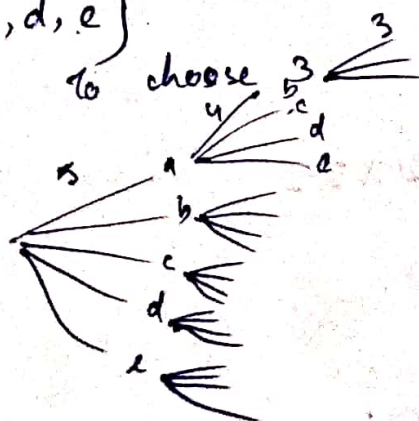 , d, e }
To choose 3
3
4
b
c
d
e
5
a
b
c
d
e